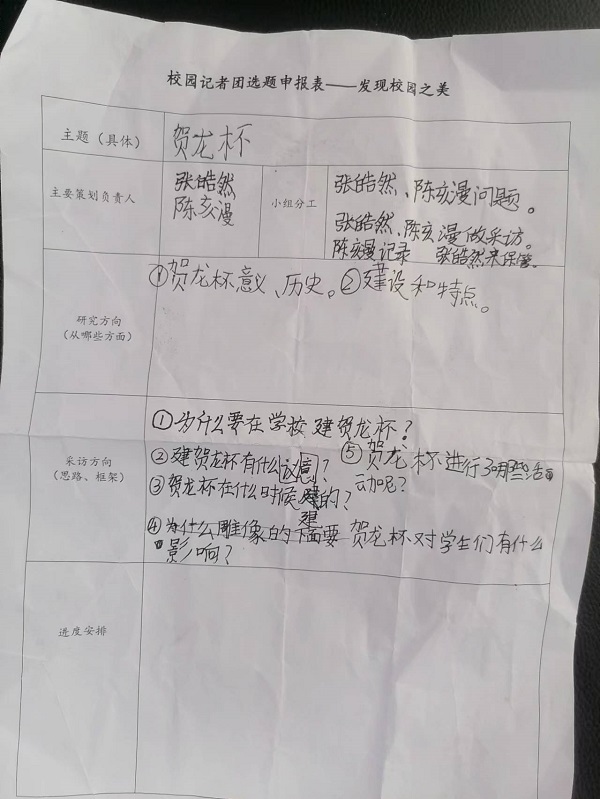 校园记者团选题申报表——发现校园之美
主题（具体）
贺龙杯
主要策划负责人
张皓然
陈亥漫
小组分工
张皓然、陈亥漫问题。
张皓然、陈亥漫做采访。
陈亥漫记录 张皓然来保管。
研究方向
（从哪些方面）
①贺龙杯意义、历史。②建设和特点。
采访方向
（思路、框架）
①为什么要在学校建贺龙杯？
②建贺龙杯有什么意？
③贺龙杯在什么时候建的？
④为什么雕像的下面要 贺龙杯对学生们有什么
影响？
⑤贺龙杯进行了哪些活
动呢？
进度安排